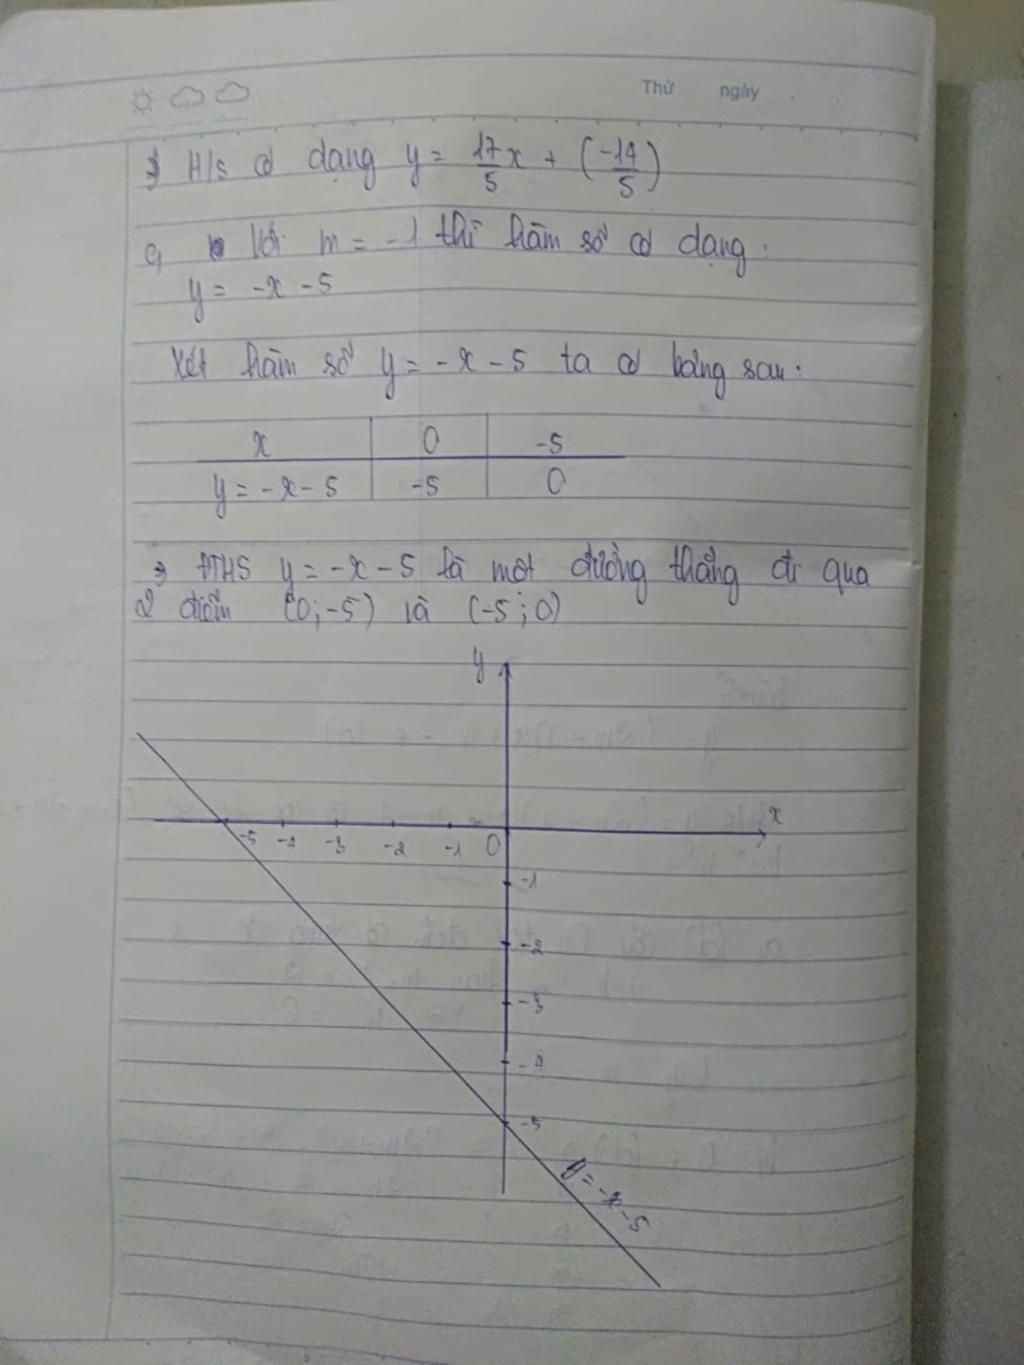 Thứ ngày
⇒ H/s có dạng y = 17/5 x + (-14/5)
c, Với m = -1 thì hàm số có dạng:
y = -x - 5
Xét hàm số y = -x - 5 ta có bảng sau:
x 0 -5
y = -x - 5 -5 0
⇒ ĐTHS y = -x - 5 là một đường thẳng đi qua
2 điểm (0; -5) và (-5; 0)
y
x
-5 -4 -3 -2 -1 0
-1
-2
-3
-4
-5
y = -x - 5